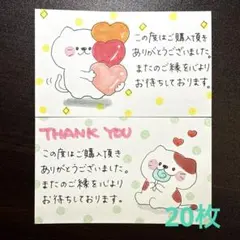 この度はご購入頂き
ありがとうございました。
またのご縁を心より
お待ちしております。
THANK YOU
この度はご購入頂き
ありがとうございました。
またのご縁を心より
お待ちしております。
20枚